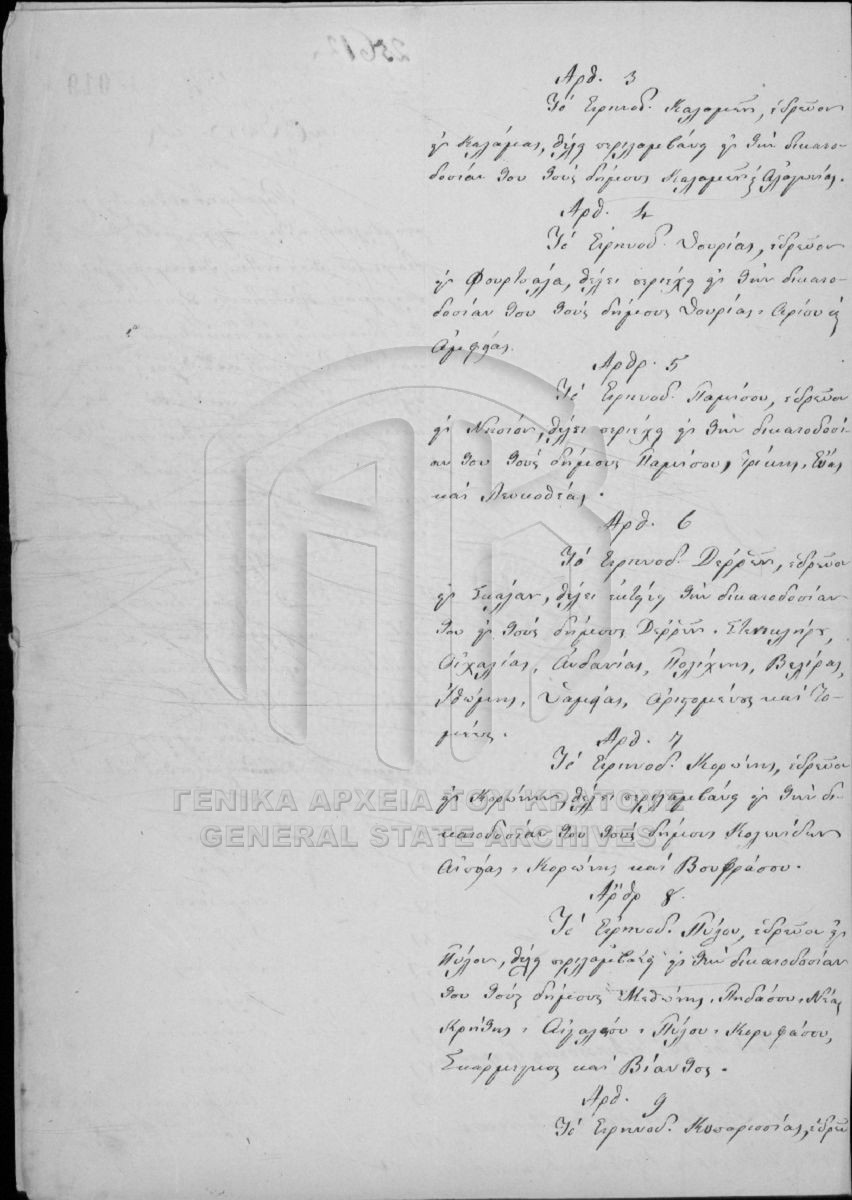 Αρθ. 3
Τὸ Ειρηνοδ. Καλαμῶν, ἑδρεῦον
εἰς Καλάμας, θέλει περιλαμβάνει εἰς τὴν δικαιο-
δοσίαν του τοὺς δήμους Καλαμῶν ϗ Αλαγωνίας.
Αρθ. 4
Τὸ Εἰρηνοδ. Θουρίας, ἑδρεῦον
εἰς Φουρτζάλα, θέλει περιέχει εἰς τὴν δικαιο-
δοσίαν του τοὺς δήμους Θουρίας, Αρίου ϗ
Αμφείας.
Αρθρ. 5
Τὸ Ειρηνοδ. Παμίσου, ἑδρεῦον
εἰς Νησίον, θέλει περιέχει εἰς τὴν δικαιοδοσί-
αν του τοὺς δήμους Παμίσου, Τρίκης, Εὔας
καὶ Λευκοθέας.
Αρθ. 6
Τὸ Ειρηνοδ. Δερρῶν, ἑδρεῦον
εἰς Σκάλαν, θέλει ἐκτείνει τὴν δικαιοδοσίαν
του εἰς τοὺς δήμους Δερρῶν, Στενυκλήρου,
Οἰχαλίας, Ανδανίας, Πολίχνης, Βελίρας,
Ἰθώμης, Ὑαμείας, Αριστομένους καὶ Το-
μέως.
Αρθ. 7
Τὸ Ειρηνοδ. Κορώνης, ἑδρεῦον
εἰς Κορώνην, θέλει περιλαμβάνει εἰς τὴν δι-
καιοδοσίαν του τοὺς δήμους Κολωνίδων
Αἰπείας, Κορώνης καὶ Βουφράσου.
Αρθρ 8.
Τὸ Εἰρηνοδ. Πύλου, ἑδρεῦον εἰς
Πύλον, θέλει περιλαμβάνει εἰς τὴν δικαιοδοσίαν
του τοὺς δήμους Μεθώνης, Πηδάσου, Νέας
Κρήτης, Αἰγαλέου, Πύλου, Κορυφάσου,
Σκάρμιγκος καὶ Βίαντος.
Αρθ. 9
Τὸ Ειρηνοδ. Κυπαρισσίας, ἑδρεῦ
ΓΕΝΙΚΑ ΑΡΧΕΙΑ ΤΟΥ ΚΡΑΤΟΥΣ
GENERAL STATE ARCHIVES